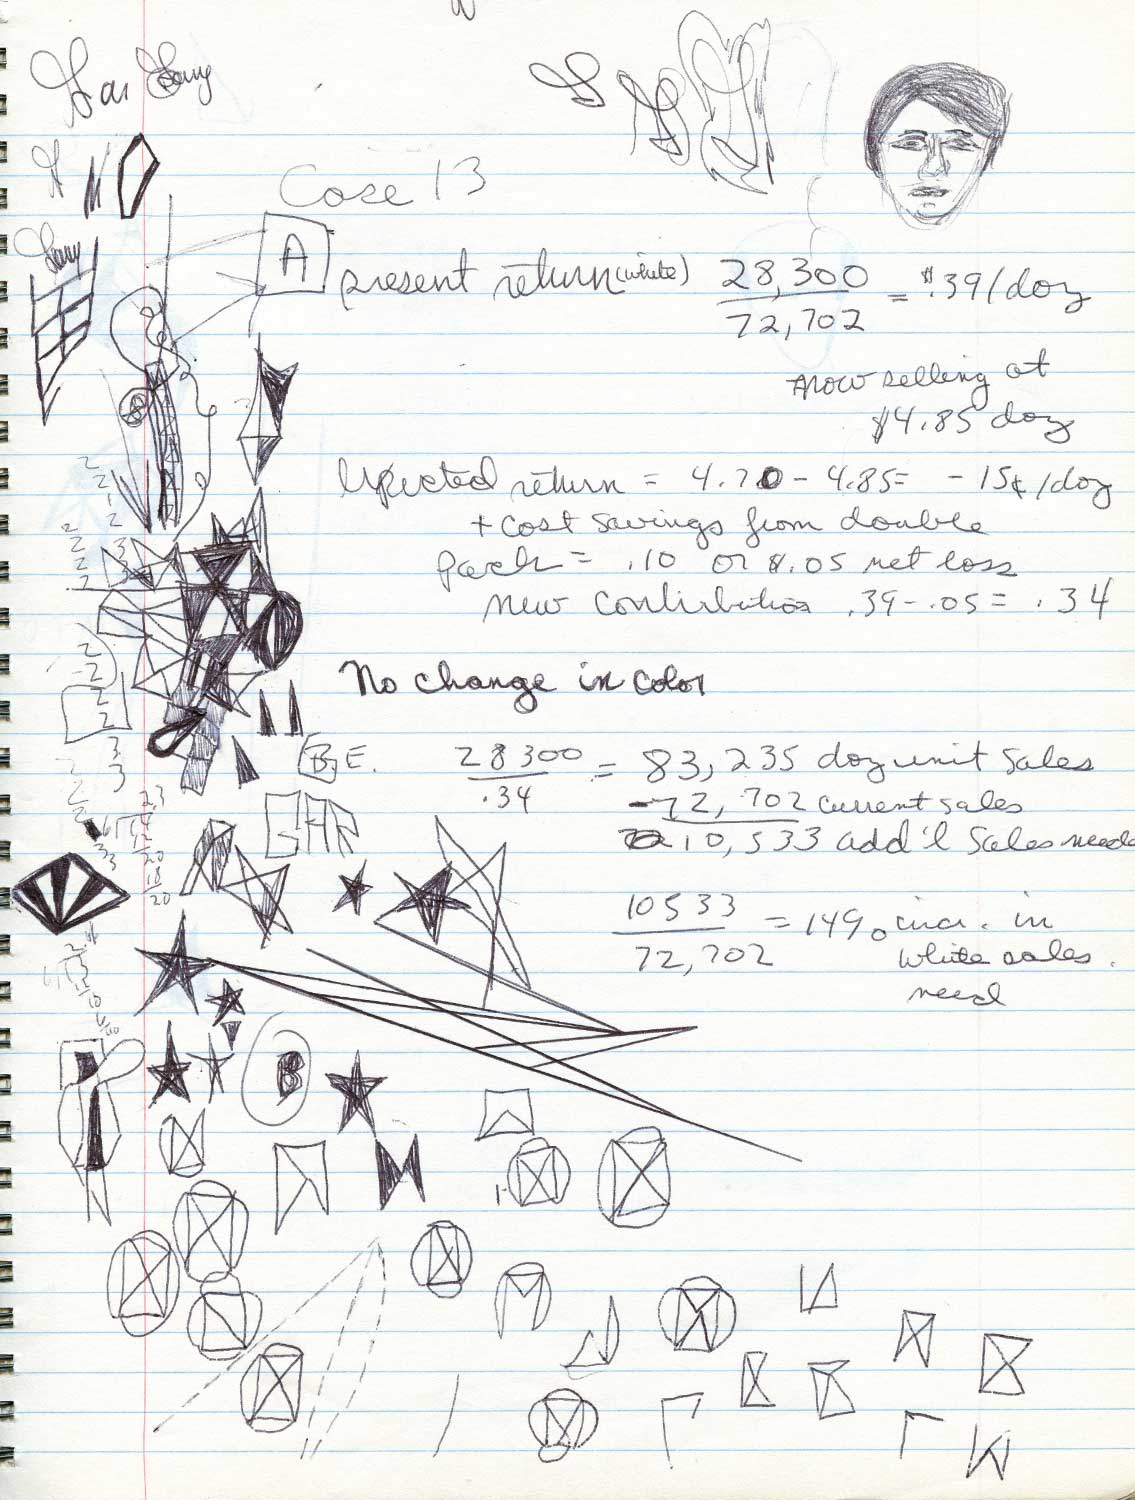 Case 13
A
present return (white) 28,300 / 72,702 = $.39/doz
now selling at
$4.85 doz
Expected return = 4.70 - 4.85 = -15¢/doz
+ cost savings from double
pack = .10 or $.05 net loss
new contribution .39 - .05 = .34
No change in color
B.E. 28300 / .34 = 83,235 doz unit sales
-72,702 current sales
10,533 add'l sales need
GAR
10533 / 72,702 = 14% incr. in
white sales.
need
B